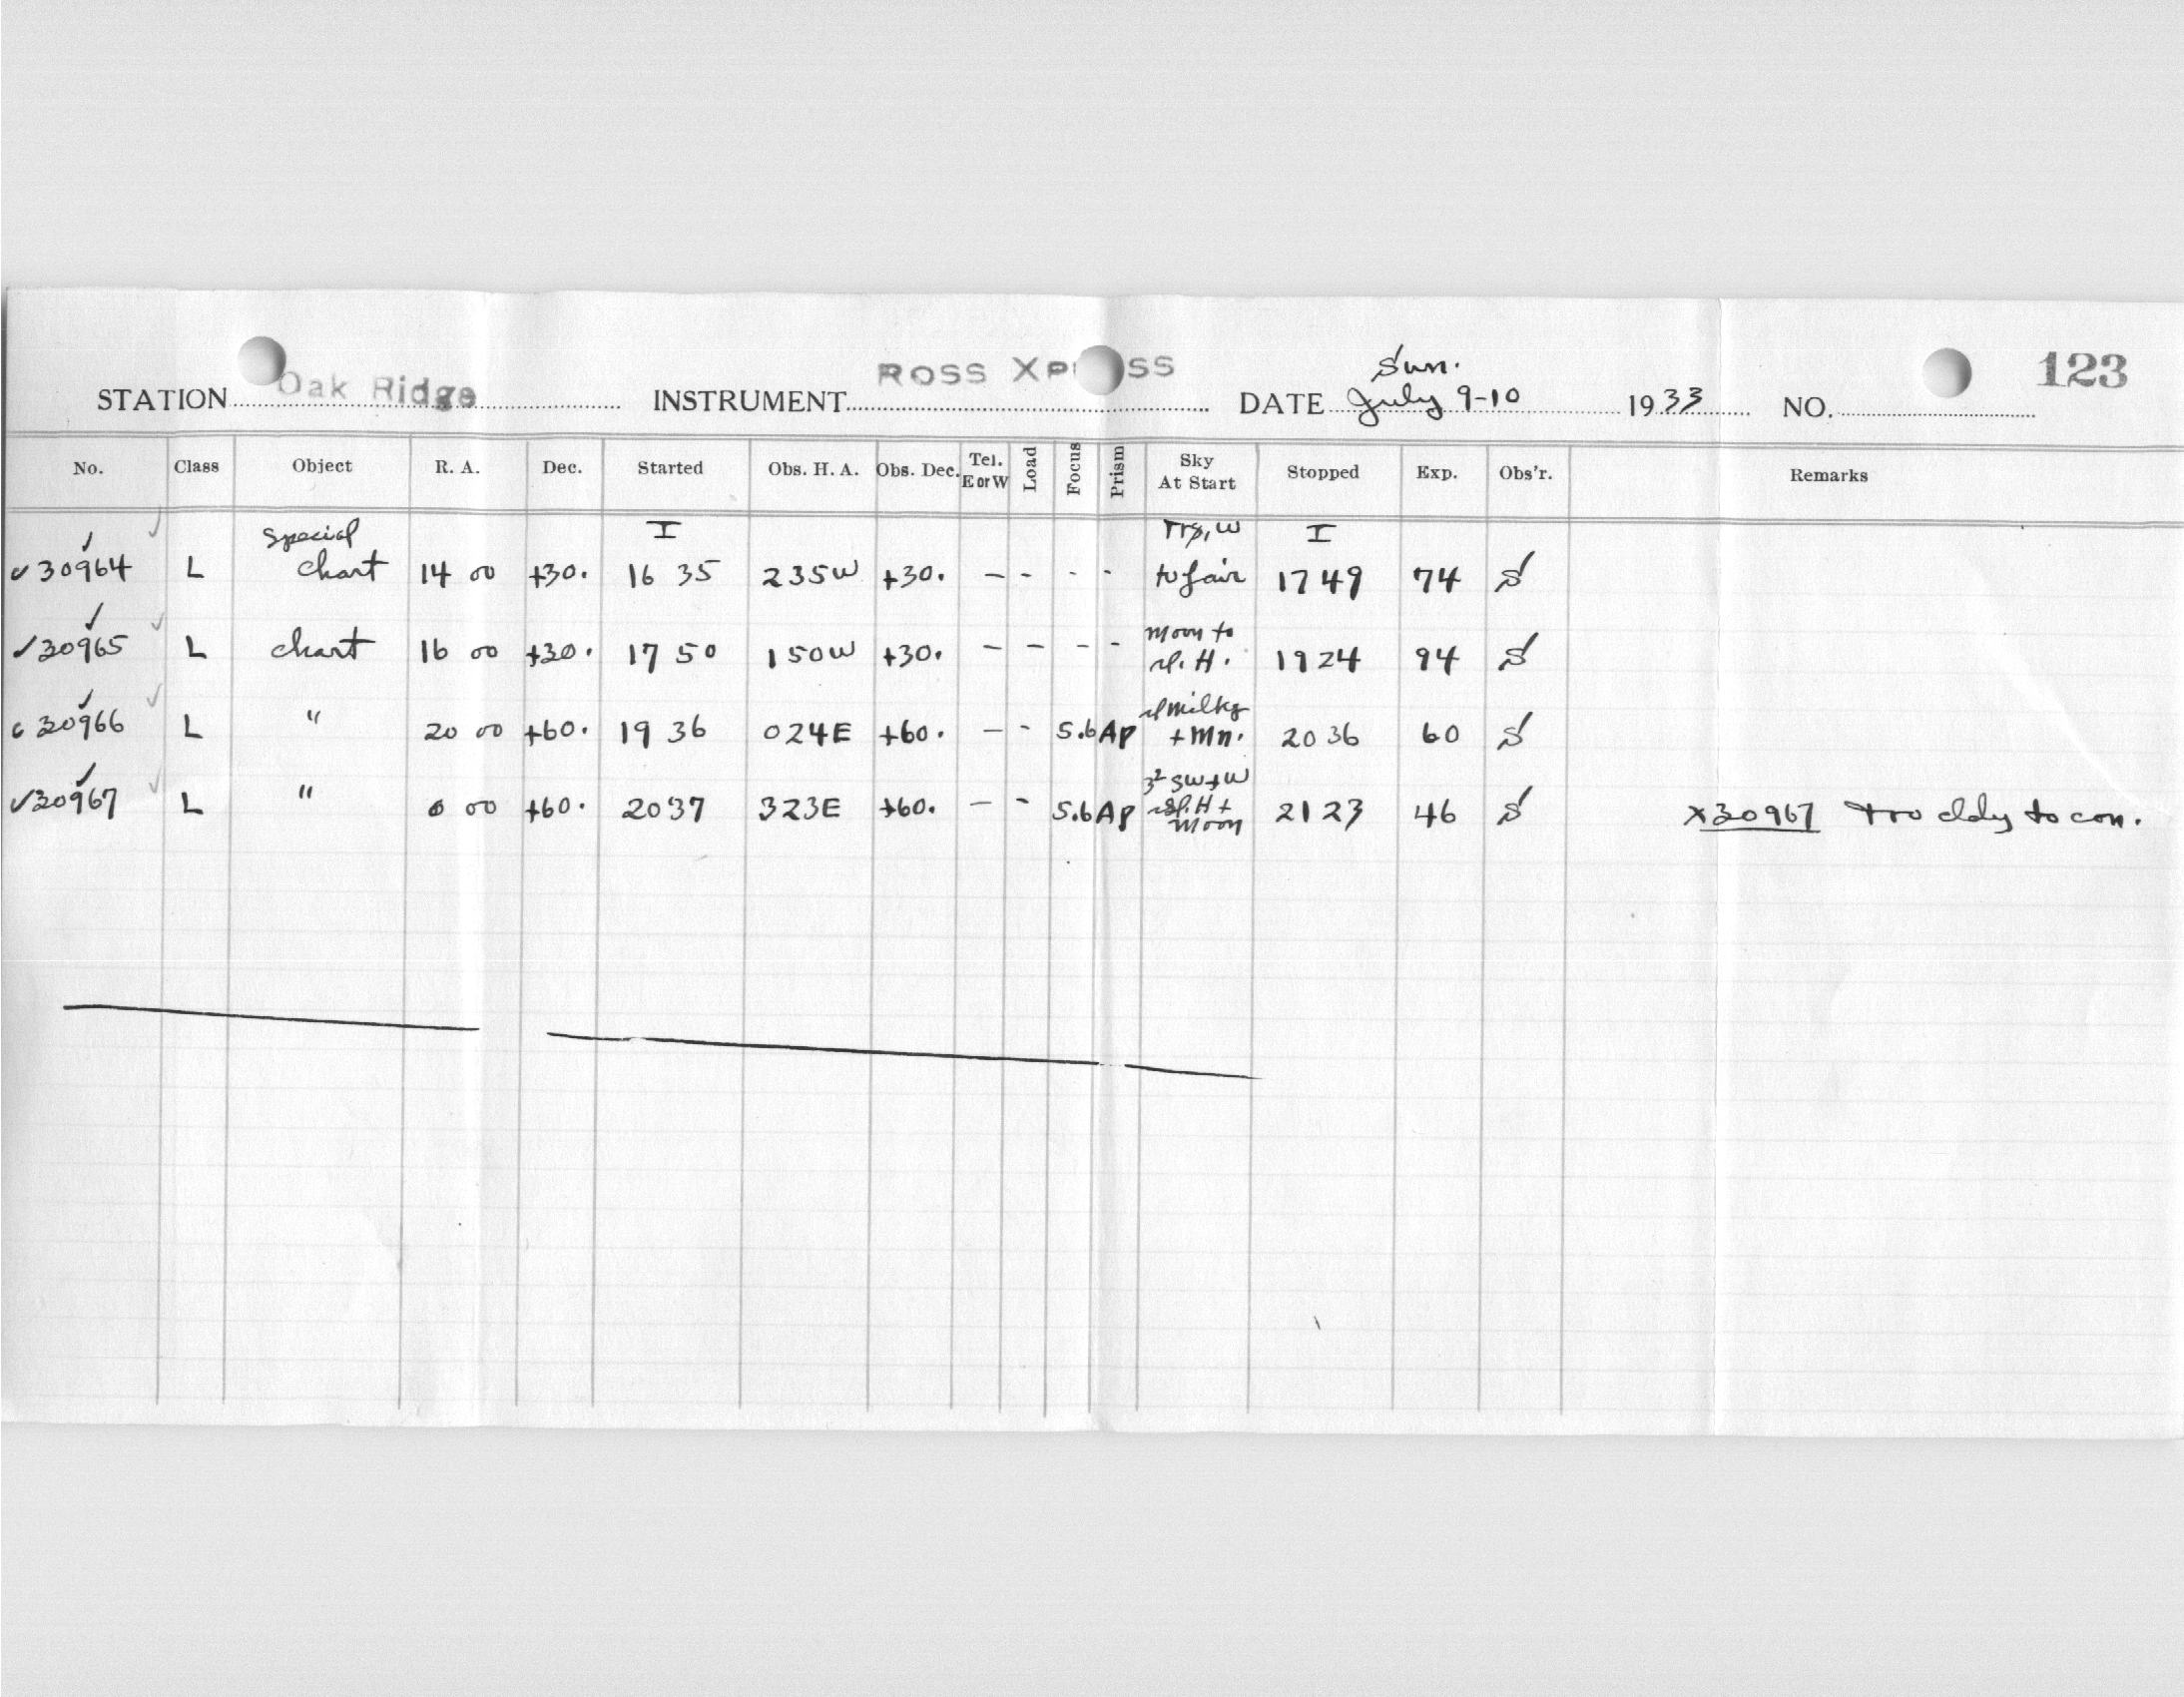 Sun.
STATION Oak Ridge INSTRUMENT ROSS XP SS DATE July 9-10 1933 NO. 123
No. Class Object R. A. Dec. Started Obs. H. A. Obs. Dec. Tel. E or W Load Focus Prism Sky At Start Stopped Exp. Obs'r. Remarks
Special I I
✓30964 L chart 14 00 +30. 16 35 235W +30. - - - - to fair 1749 74 S
moon to
✓30965 L chart 16 00 +30. 17 50 150W +30. - - - - sl. H. 1924 94 S
sl milky
30966 L " 20 00 +60. 19 36 024E +60. - - 5.6 Ap + Mn. 2036 60 S
SW+W
✓30967 L " 0 00 +60. 2037 323E +60. - - 5.6 Ap sl. H + 2123 46 S X30967 too cldy to con.
moon